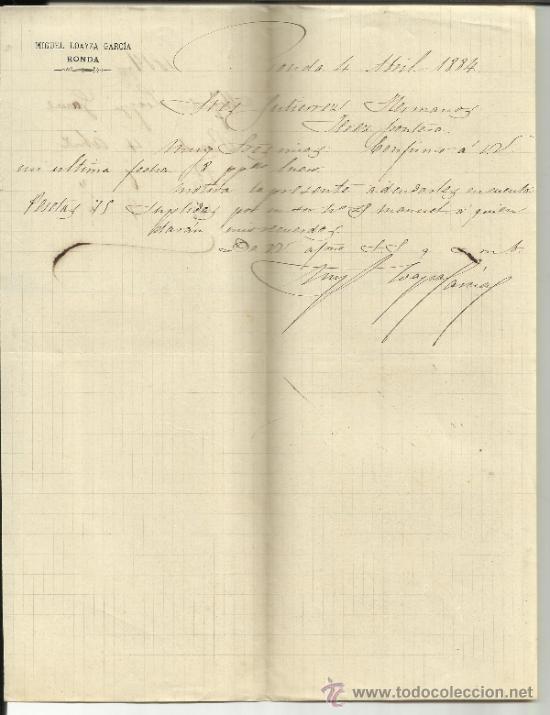 MIGUEL LOAYZA GARCÍA
RONDA
Ronda 4 Abril 1884
Sres Gutierrez Hermanos
Jerez frontera
Muy Sres mios Confirmo á VV
mi ultima fecha 18 pp.do
motiva la presente adendarles en cuenta
Pesetas 75 suplidas por mi á quien
darán mis recuerdos
De VV afmo S.S. q b s m
Loayza García
www.todocoleccion.net